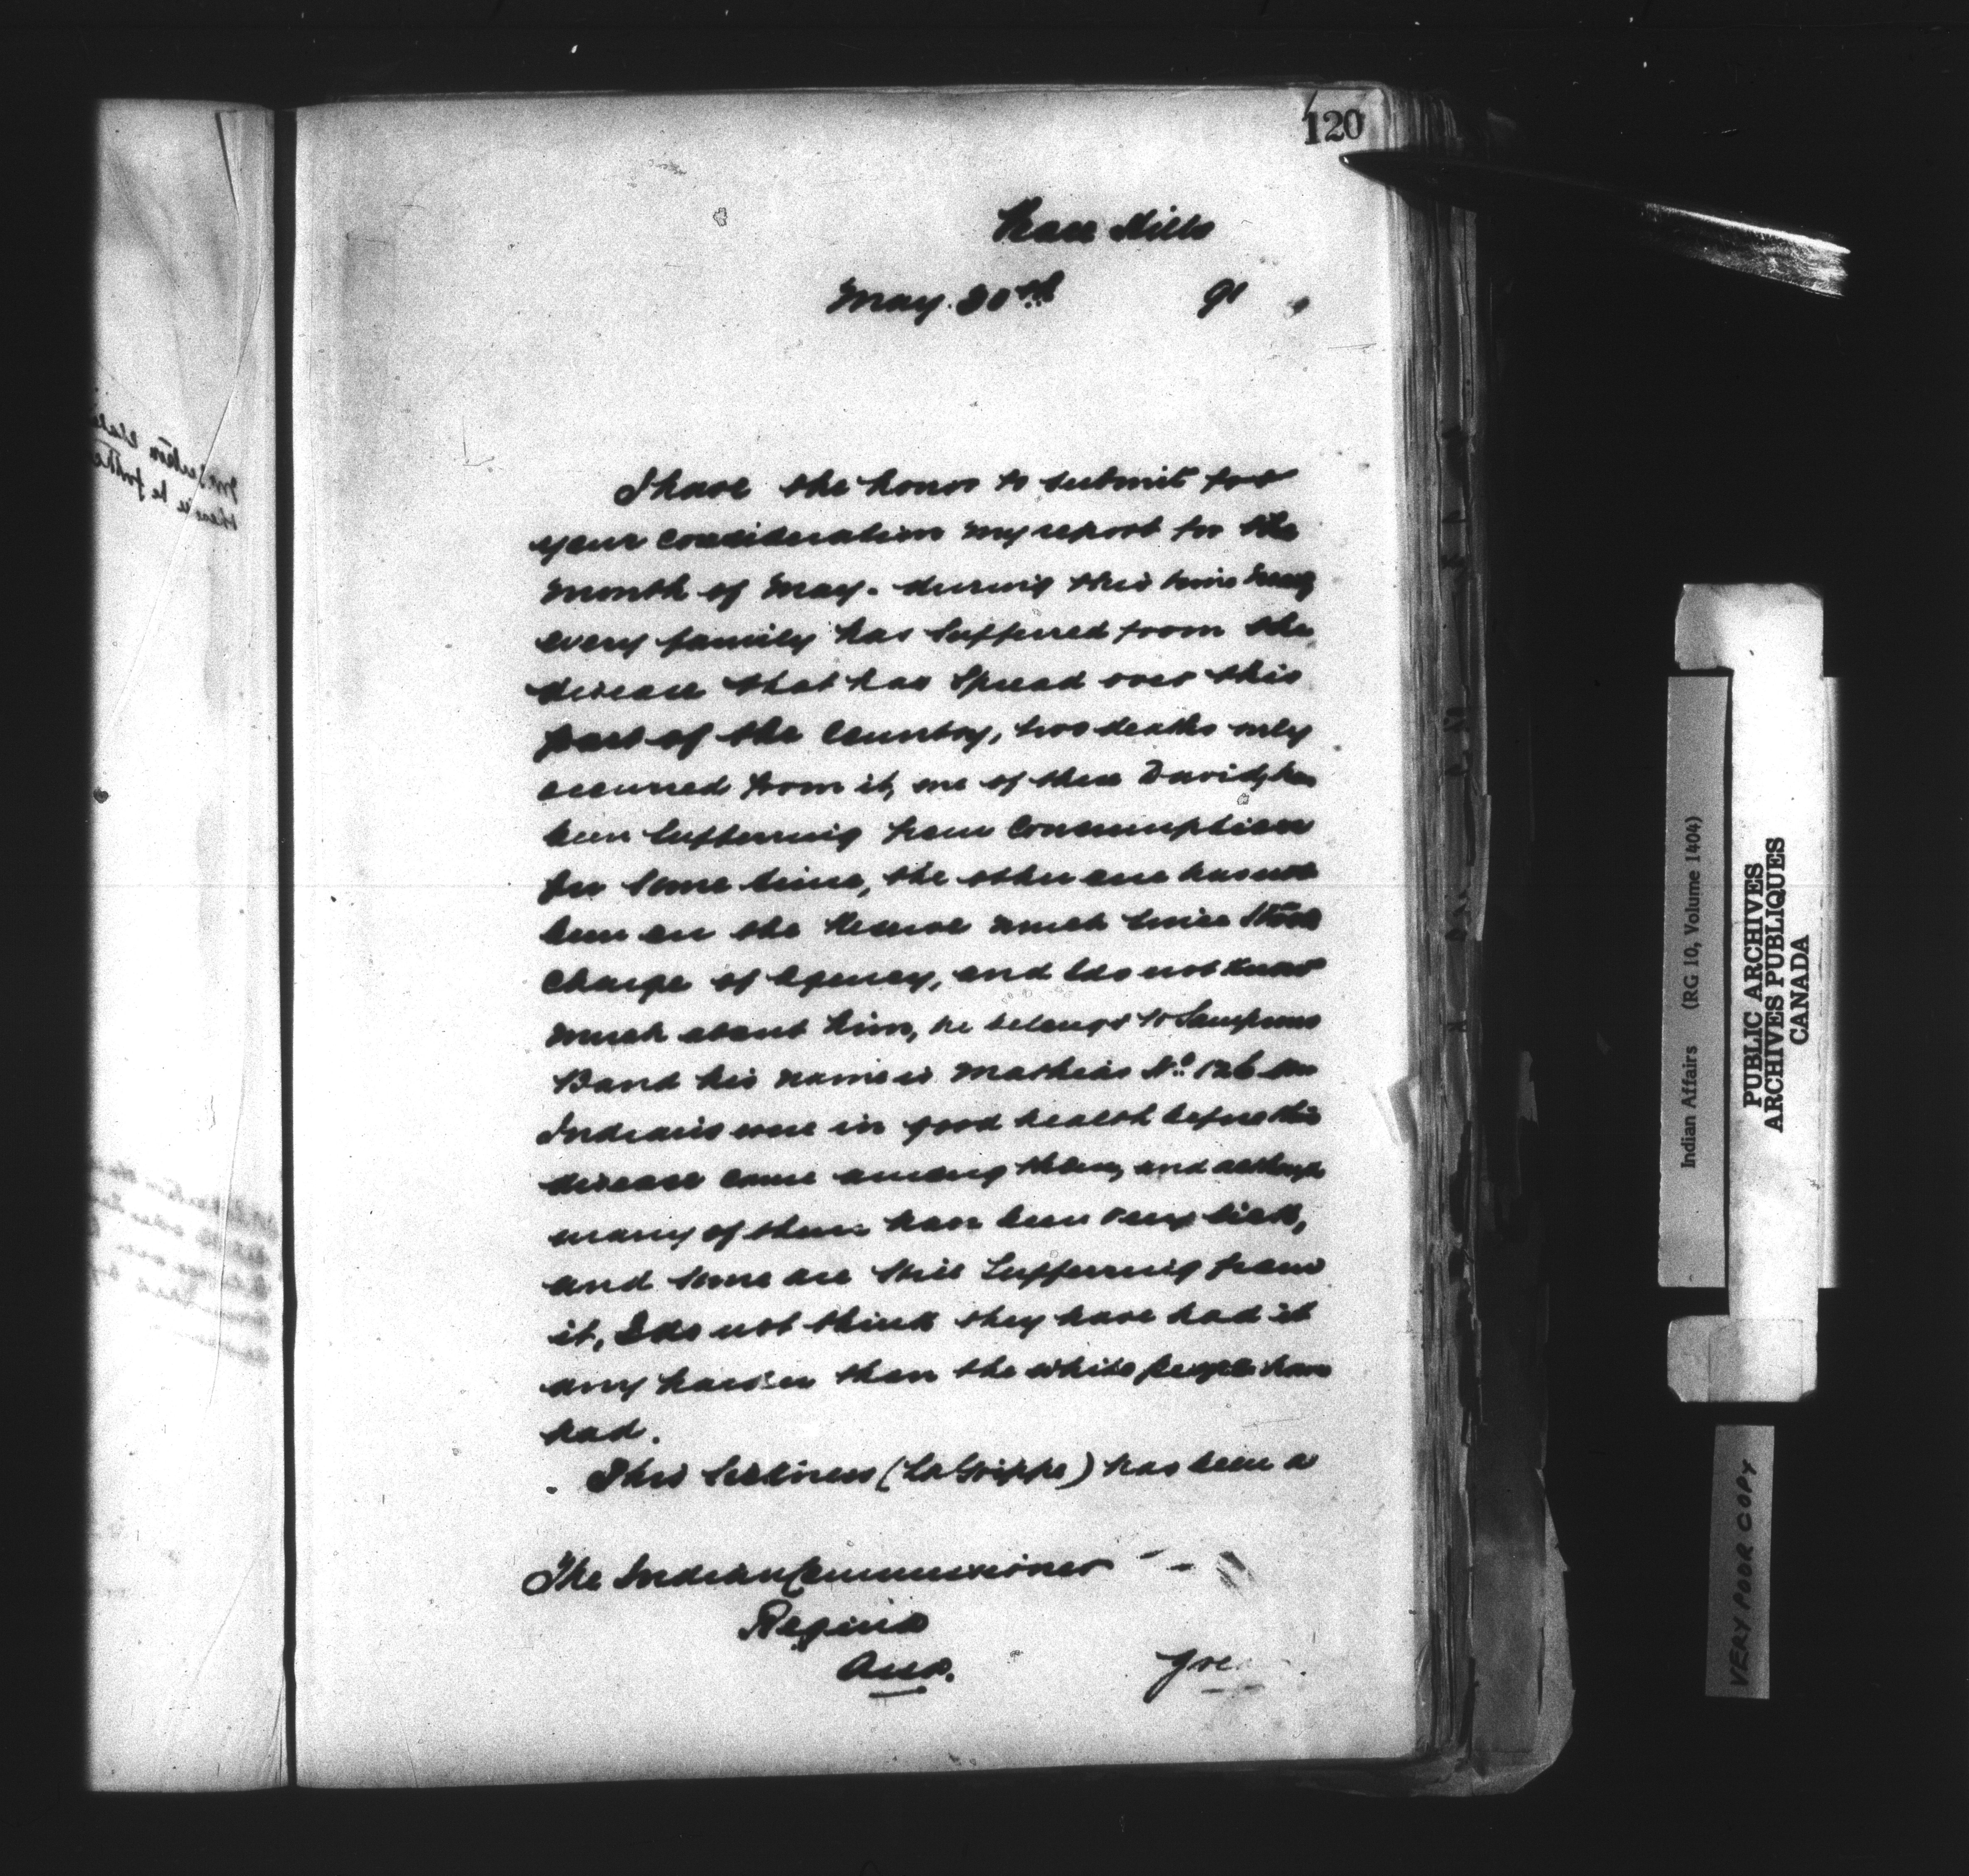 120
Peace Hills
May 30th 91
I have the honor to submit for
your consideration my report for the
month of May. during this time nearly
every family has suffered from the
disease that has spread over this
part of the Country, two deaths only
occurred from it, one of these David, has
been suffering from Consumption
for some time, the other one has not
been on the Reserve much since I took
charge of Agency, and I do not know
much about him, he belongs to Sampsons
Band his name is Mathias No. 126
Indians were in good health before this
disease came among them, and although
many of them have been very sick,
and some are still suffering from
it, I do not think they have had it
any harder than the white people have
had.
This sickness (La Grippe) has been a
The Indian Commissioner
Regina
Assa.
Indian Affairs (RG 10, Volume 1404)
PUBLIC ARCHIVES
ARCHIVES PUBLIQUES
CANADA
VERY POOR COPY